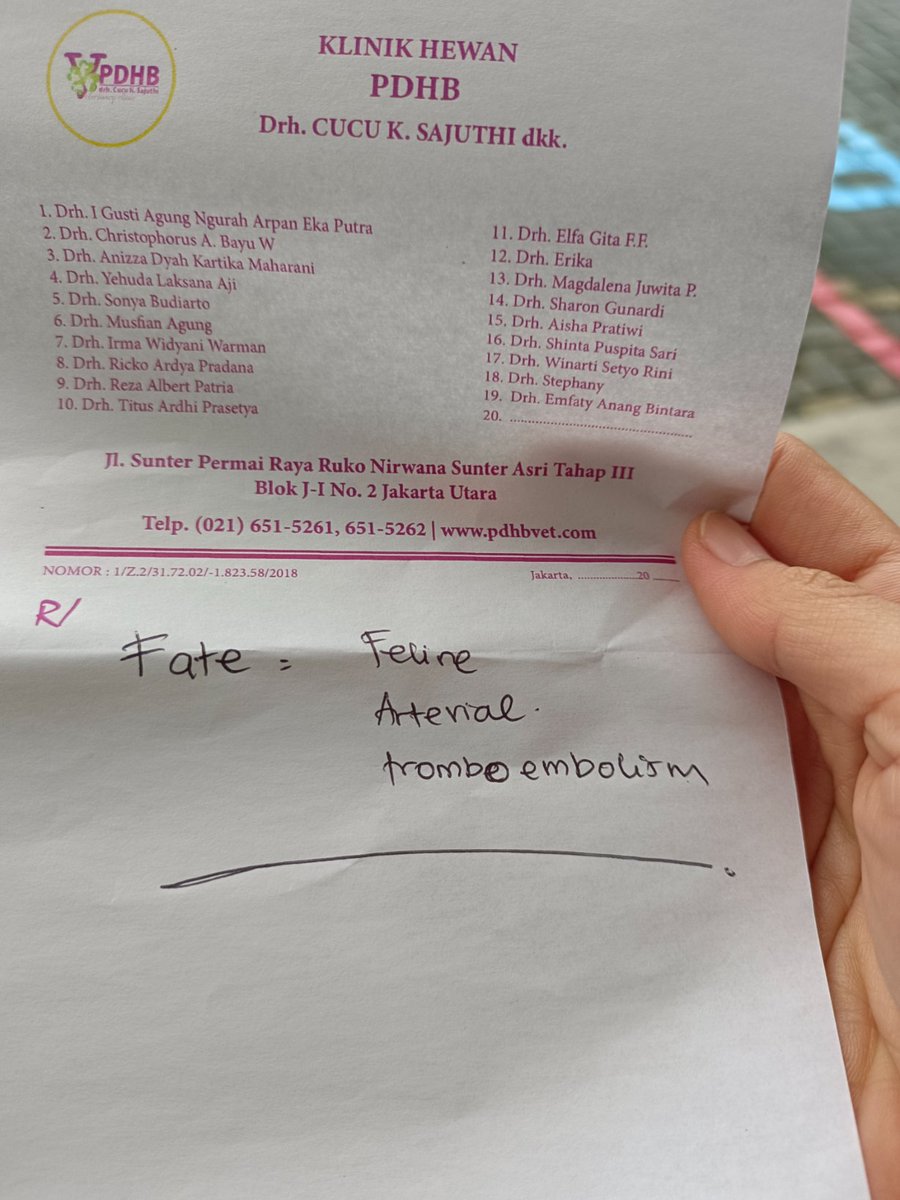 PDHB
drh. Cucu K. Sajuthi
KLINIK HEWAN
PDHB
Drh. CUCU K. SAJUTHI dkk.
1. Drh. I Gusti Agung Ngurah Arpan Eka Putra
2. Drh. Christophorus A. Bayu W
3. Drh. Anizza Dyah Kartika Maharani
4. Drh. Yehuda Laksana Aji
5. Drh. Sonya Budiarto
6. Drh. Musfian Agung
7. Drh. Irma Widyani Warman
8. Drh. Ricko Ardya Pradana
9. Drh. Reza Albert Patria
10. Drh. Titus Ardhi Prasetya
11. Drh. Elfa Gita F.F.
12. Drh. Erika
13. Drh. Magdalena Juwita P.
14. Drh. Sharon Gunardi
15. Drh. Aisha Pratiwi
16. Drh. Shinta Puspita Sari
17. Drh. Winarti Setyo Rini
18. Drh. Stephany
19. Drh. Emfaty Anang Bintara
20. ................................................
Jl. Sunter Permai Raya Ruko Nirwana Sunter Asri Tahap III
Blok J-I No. 2 Jakarta Utara
Telp. (021) 651-5261, 651-5262 | www.pdhbvet.com
NOMOR : 1/Z.2/31.72.02/-1.823.58/2018
Jakarta, ....................20 ____
R/
Fate = Feline
Arterial.
tromboembolism